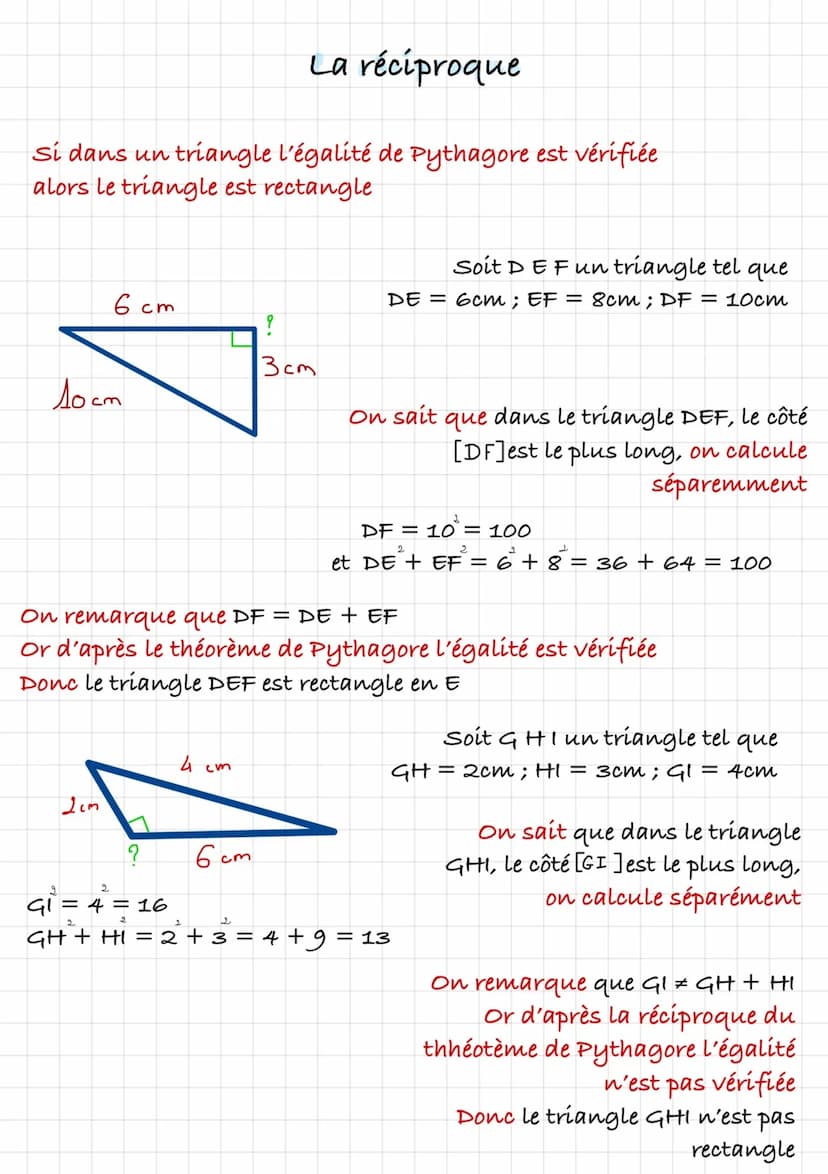 La réciproque
Si dans un triangle l'égalité de Pythagore est vérifiée
alors le triangle est rectangle
Soit D E F un triangle tel que
DE = 6cm ; EF = 8cm ; DF = 10cm
6 cm
?
3 cm
10 cm
On sait que dans le triangle DEF, le côté
[DF]est le plus long, on calcule
séparemment
DF = 10² = 100
et DE² + EF² = 6² + 8² = 36 + 64 = 100
On remarque que DF = DE + EF
Or d'après le théorème de Pythagore l'égalité est vérifiée
Donc le triangle DEF est rectangle en E
Soit G H I un triangle tel que
GH = 2cm ; HI = 3cm ; GI = 4cm
4 cm
2cm
?
6 cm
On sait que dans le triangle
GHI, le côté [GI ]est le plus long,
on calcule séparément
GI² = 4² = 16
GH² + HI² = 2² + 3² = 4 + 9 = 13
On remarque que GI ≠ GH + HI
Or d'après la réciproque du
thhéotème de Pythagore l'égalité
n'est pas vérifiée
Donc le triangle GHI n'est pas
rectangle